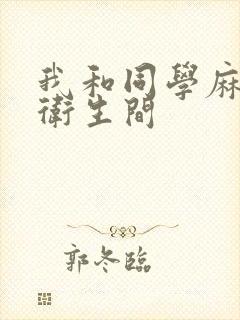 我和同學麻
衛生間
郭冬臨